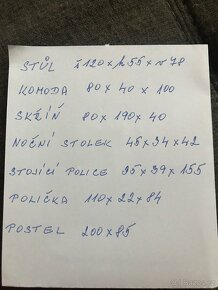 STŮL š 120 x h 55 x v 78
KOMODA 80 x 40 x 100
SKŘÍŇ 80 x 190 x 40
NOČNÍ STOLEK 45 x 34 x 42
STOJÍCÍ POLICE 25 x 39 x 155
POLIČKA 110 x 22 x 84
POSTEL 200 x 85